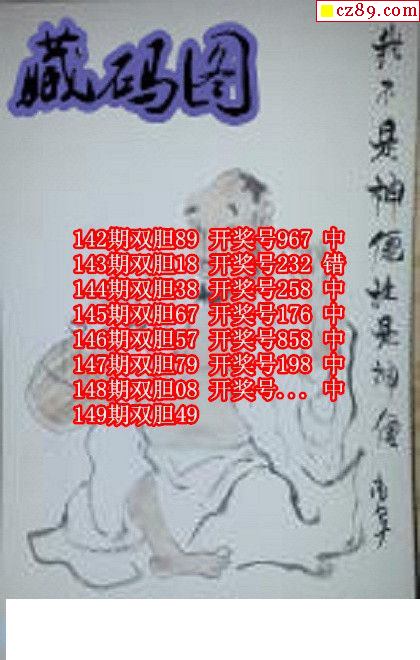 cz89.com
藏码图
142期双胆89 开奖号967 中
143期双胆18 开奖号232 错
144期双胆38 开奖号258 中
145期双胆67 开奖号176 中
146期双胆57 开奖号858 中
147期双胆79 开奖号198 中
148期双胆08 开奖号... 中
149期双胆49
我不是神仙